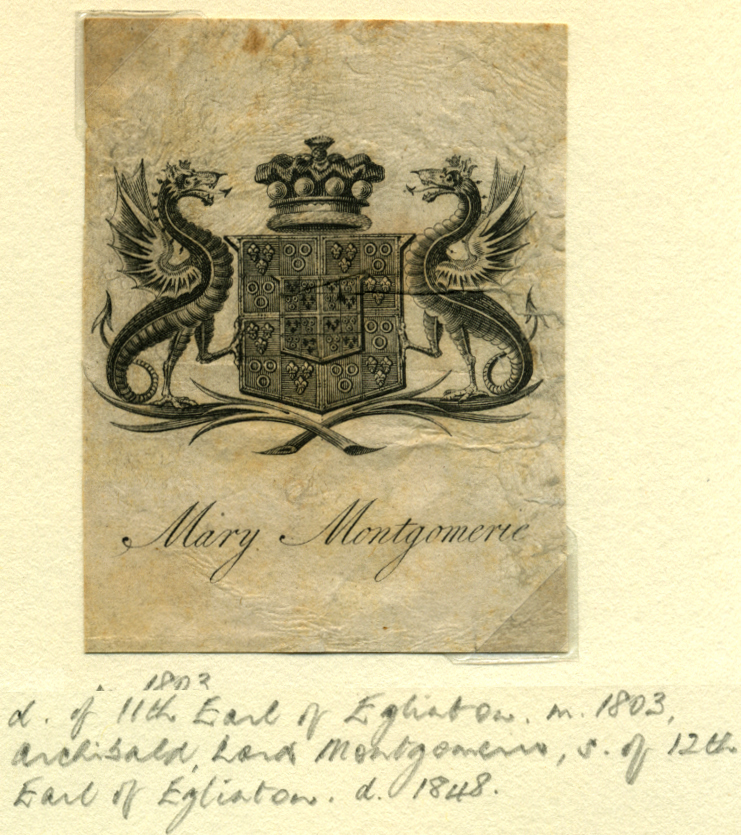 Mary Montgomerie
1803
d. of 11th Earl of Eglinton. m. 1803,
Archibald, Lord Montgomerie, s. of 12th
Earl of Eglinton. d. 1848.